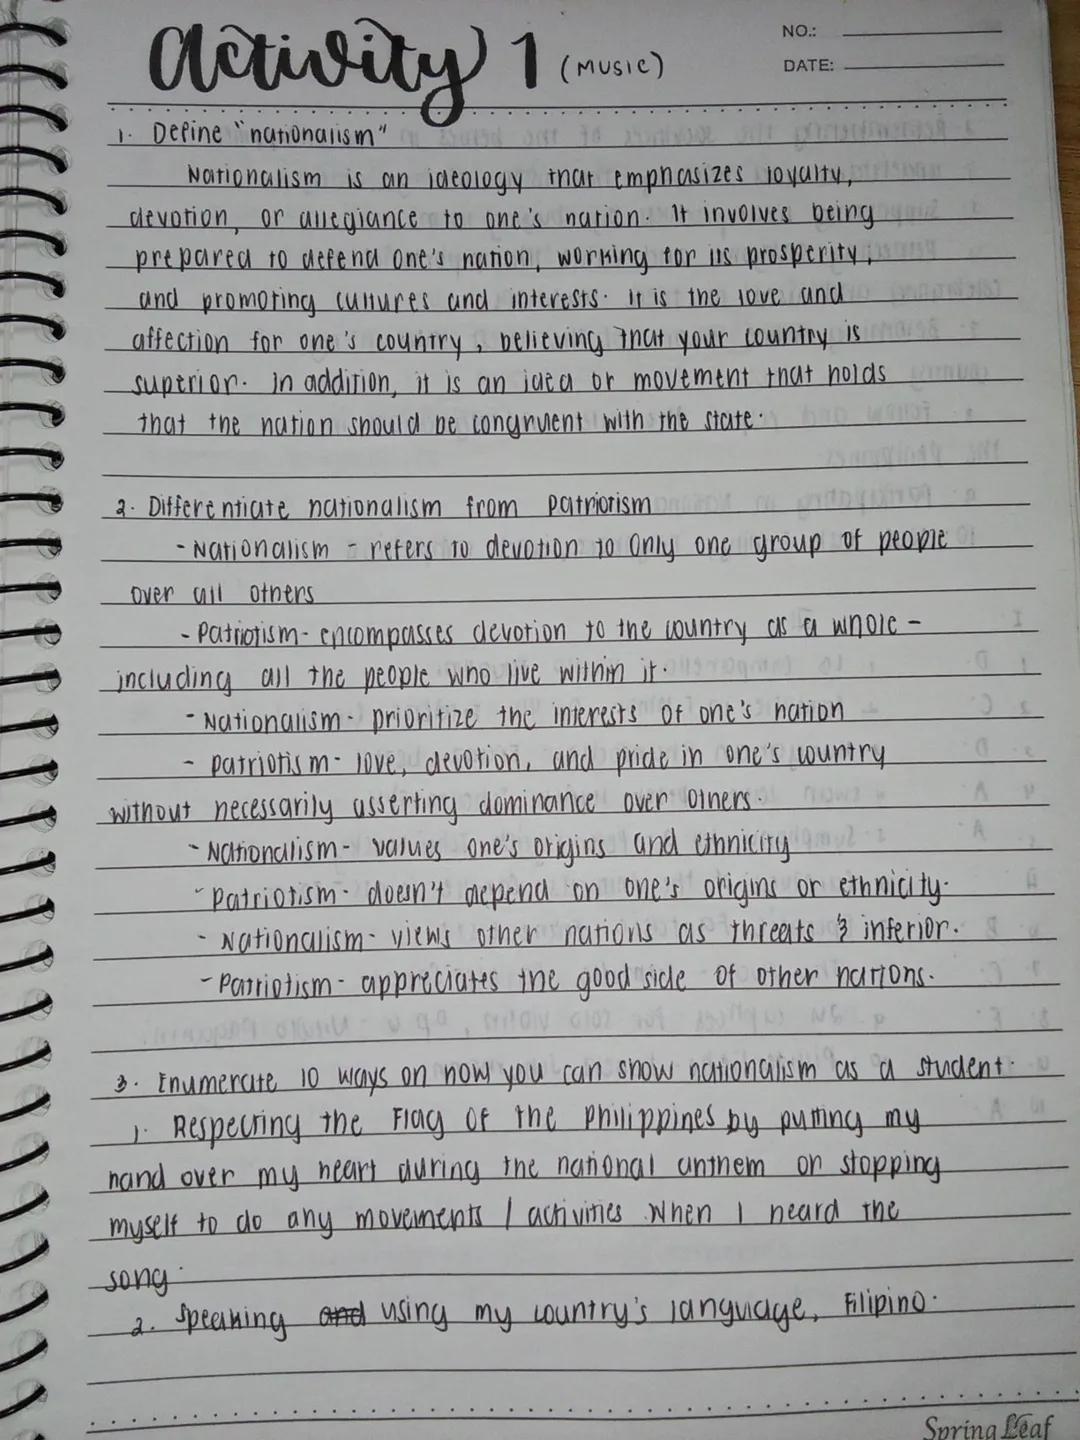 Activity 1 (MUSIC)
NO.:
DATE:
1. Define "nationalism"
Nationalism is an ideology that emphasizes loyalty,
devotion, or allegiance to one's nation. It involves being
prepared to defend one's nation, working for its prosperity,
and promoting cultures and interests. It is the love and
affection for one's country, believing that your country is
superior. In addition, it is an idea or movement that holds
that the nation should be congruent with the state.
2. Differentiate nationalism from patriotism
- Nationalism - refers to devotion to only one group of people
over all others
- Patriotism - encompasses devotion to the country as a whole -
including all the people who live within it.
- Nationalism - prioritize the interests of one's nation
- patriotism - love, devotion, and pride in one's country
without necessarily asserting dominance over others.
- Nationalism - values one's origins and ethnicity
- patriotism - doesn't depend on one's origins or ethnicity.
- Nationalism - views other nations as threats & inferior.
- Patriotism - appreciates the good side of other nations.
3. Enumerate 10 ways on how you can show nationalism as a student.
1. Respecting the Flag of the philippines by putting my
hand over my heart during the national anthem or stopping
myself to do any movements / activities when I heard the
song.
2. Speaking and using my country's language, Filipino.
Spring Leaf